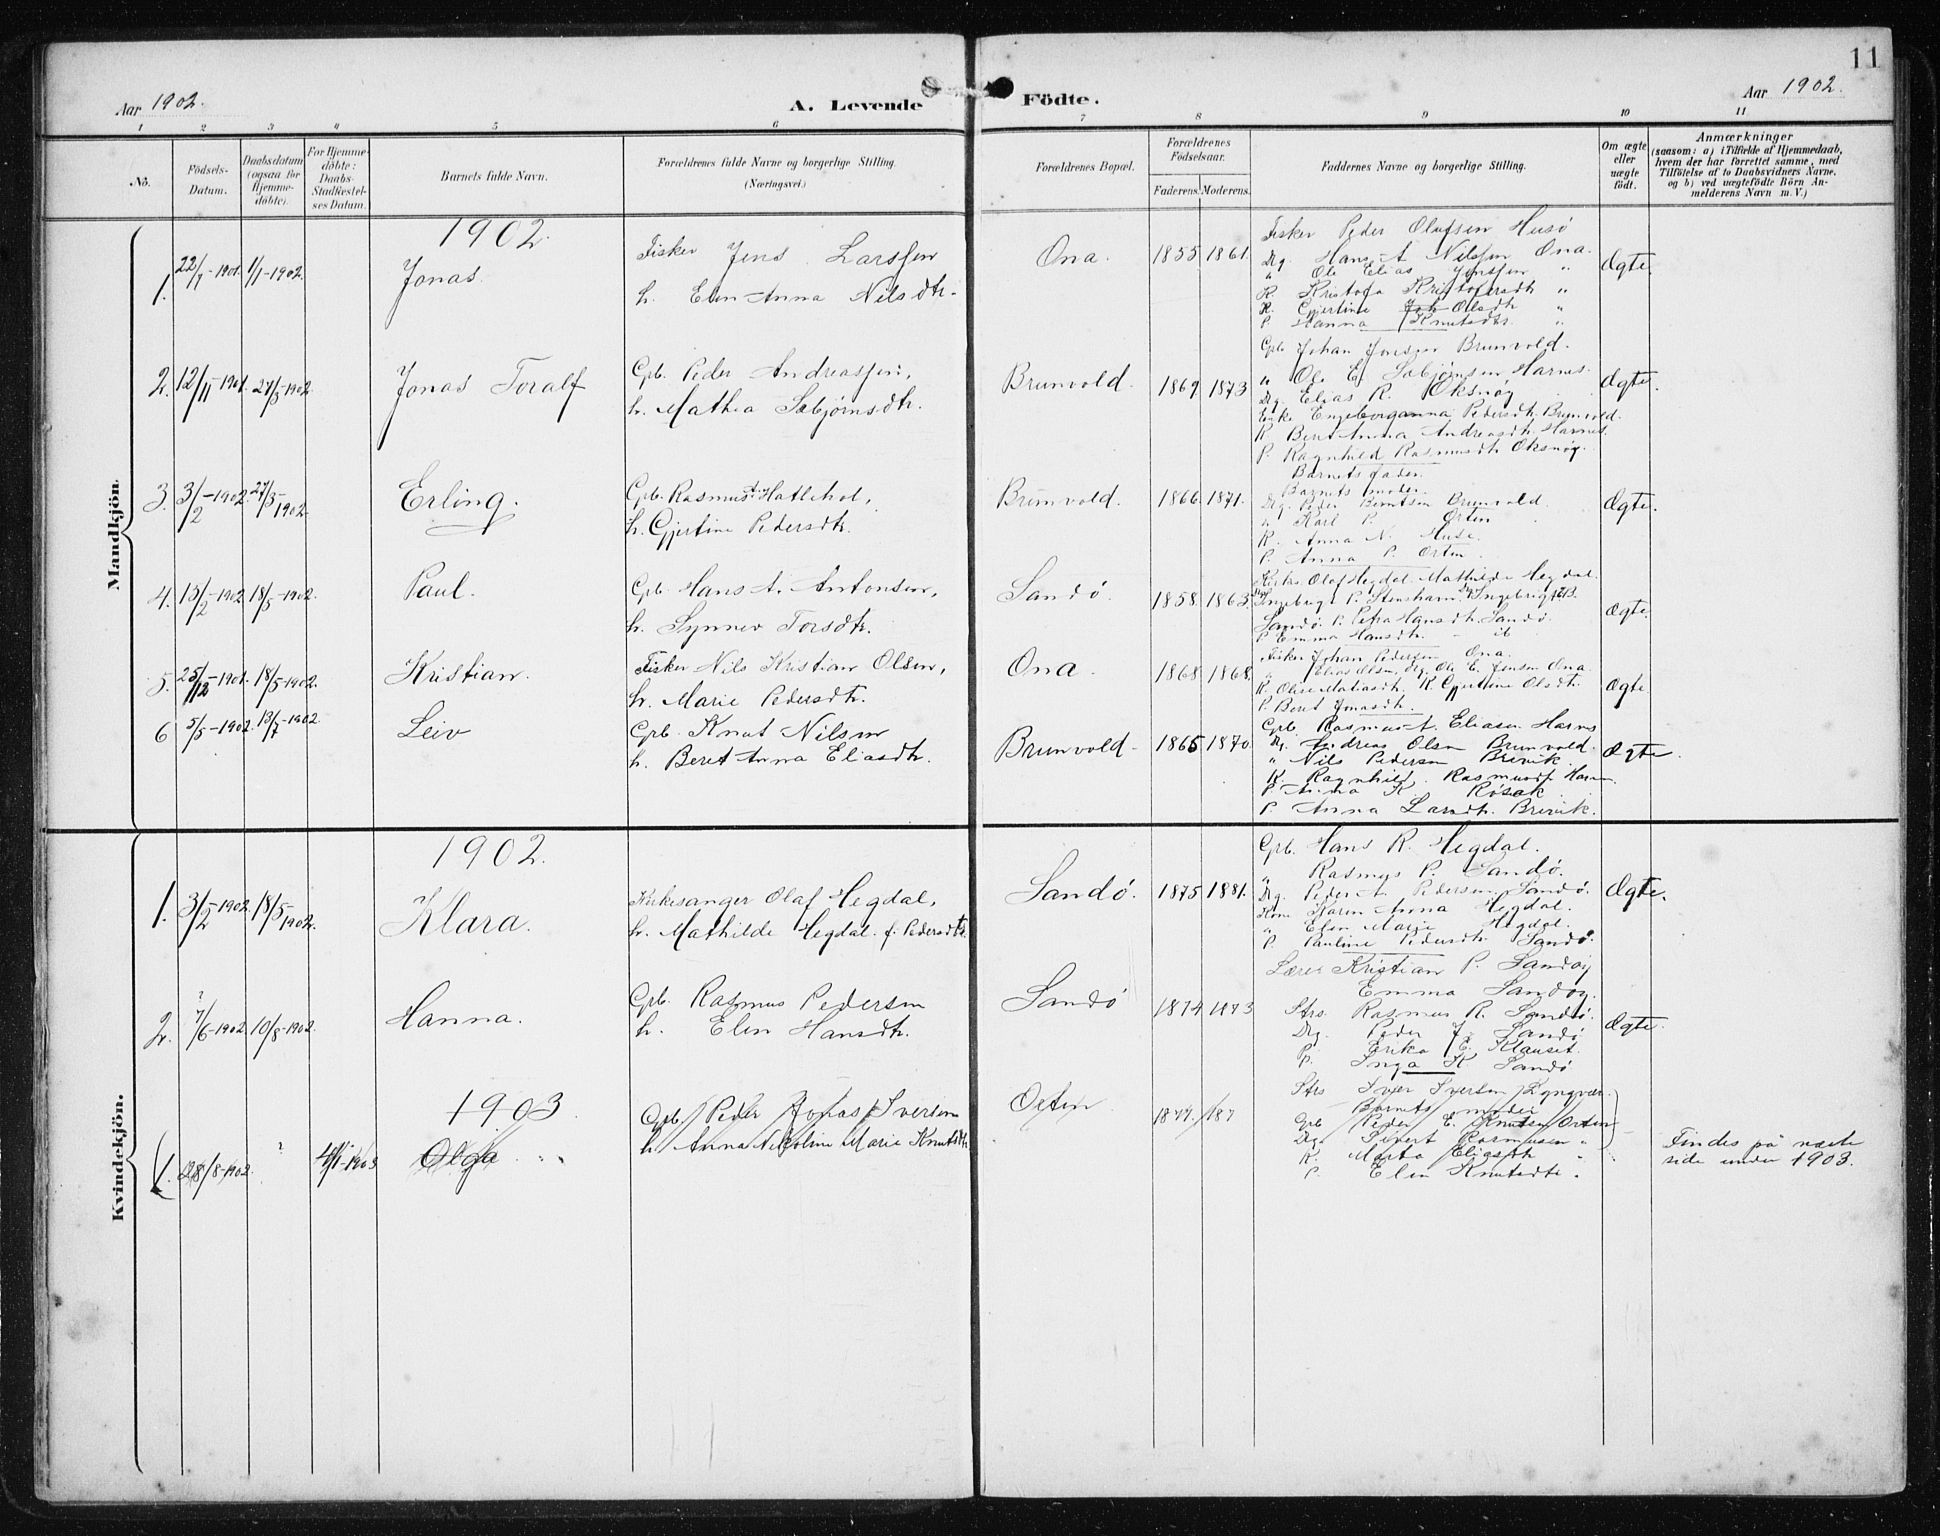 11
Aar 1902.
A. Levende Födte.
Aar 1902.
1 2 3 4 5 6 7 8 9 10 11
No.
Födsels-Datum.
Daabsdatum (ogsaa for Hjemmedöbte).
For Hjemmedöbte: Daabs-Stadfæstelses Datum.
Barnets fulde Navn.
Forældrenes fulde Navne og borgerlige Stilling.
(Næringsvei.)
Forældrenes Bopæl.
Forældrenes Födselsaar.
Faderens. Moderens.
Faddernes Navne og borgerlige Stilling.
Om ægte eller uægte födt.
Anmærkninger
(saasom: a) i Tilfælde af Hjemmedaab, hvem der har forrettet samme, med Tilföielse af to Daabsvidners Navne, og b) ved uægtefödte Börn Anmelderens Navn m. V.)
Mandkjön.
1902.
1. 22/7-1901. 1/1-1902. Jonas.
Fisker Jens Larssen
h. Elen Anna Nilsdtr.
Ona. 1855 1861.
Fisker Peder Olufsen Husö
Drg. Hans A. Nilssen Ona.
" Ole Elias Jenssen "
K. Kristofa Kristofersdtr "
K. Gjertine Olsdtr "
P. Hanna Knutsdtr. "
Ægte.
2. 12/11-1901. 27/3-1902. Jonas Toralf
Gbr. Peder Andreassen,
h. Mathea Sæbjørnsdtr.
Brunvold. 1869 1873
Gbr. Johan Jonsen Brunvold.
" Ole E. Sæbjørnsen Harnes.
Drg. Elias R. Oksnøy
Enke Engeborganna Pedersdtr. Brunvold.
K. Beret Anna Andreasdtr. Harnes.
P. Ragnhild Rasmusdtr. Oksnøy.
Ægte.
3. 3/2-1902. 27/3-1902. Erling.
Gbr. Rasmus Hatlehol,
h. Gjertine Pedersdtr.
Brunvold. 1866 1871.
Barnets fader.
Barnets moder.
Drg. Peder Berntsen Brunvold.
" Karl P. Orten
K. Anna N. Huse.
P. Anna P. Orten.
Ægte.
4. 15/2-1902 18/5-1902. Paul.
Gbr. Hans A. Antonsen,
h. Synnev Torsdtr.
Sandö. 1858. 1863.
Olaf Hegdal. Mathilde Hegdal.
Ingebrigt P. Stensham
Sandö. P. Petra Hansdtr. Sandö.
P. Emma Hansdtr. - ib
Ægte.
5. 25/12-1901. 18/5-1902. Kristian.
Fisker Nils Kristian Olsen,
h. Marie Pedersdtr.
Ona. 1868 1868.
Fisker Johan Pedersen Ona.
" Elias Olsen, Drg. Ole E. Jensen Ona.
K. Oline Matiasdtr. K. Gjertine Olsdtr.
P. Beret Jonasdtr.
Ægte
6 5/5-1902. 13/7-1902. Leiv
Gbr. Knut Nilsen
h. Beret Anna Eliasdtr.
Brunvold. 1865 1870.
Gbr. Rasmus A. Eliasen Harnes
Drg. Andreas Olsen Brunvold.
" Nils Pedersen Brevik.
K. Ragnhild Rasmusdtr Harnes
P. Anna K. Røsok
P. Anna Larsdtr. Brevik.
Ægte.
Kvindekjön.
1902.
1. 3/2-1902. 18/5-1902. Klara.
Kirkesanger Olaf Hegdal,
h. Mathilde Hegdal. f. Pedersdtr.
Sandö. 1875 1881.
Gbr. Hans R. Hegdal.
" Rasmus P. Sandö.
Drg. Peder A. Pedersen Sandö.
Kone Karen Anna Hegdal.
" Elen Marie Hegdal.
P. Pauline Pedersdtr. Sandö.
Ægte.
2. ? 7/6-1902 10/8-1902. Hanna.
Gbr. Rasmus Pedersen
h. Elen Hansdtr.
Sandö 1874 1873
Lærer Kristian P. Sandøy
Emma Sandøy.
Strs. Rasmus R. Sandö.
Drg. Peder J. Sandö
P. Erika E. Klauset.
P. Inga K. Sandö
Ægte.
1903.
1. 28/8-1902. ? 4/1-1903 Olga
Gbr. Peder Jonas Iversen
h. Anna Nikoline Marie Knutsdtr
Orten 1877. 187
Strs Iver Iversen Lyngvær
Barnets moder
Gbr Peder E. Knutsen Orten
Drg. Sivert Rasmusen "
K. Marta Eliasdtr "
P. Elen Knutsdtr.
Findes på næste
side under 1903.